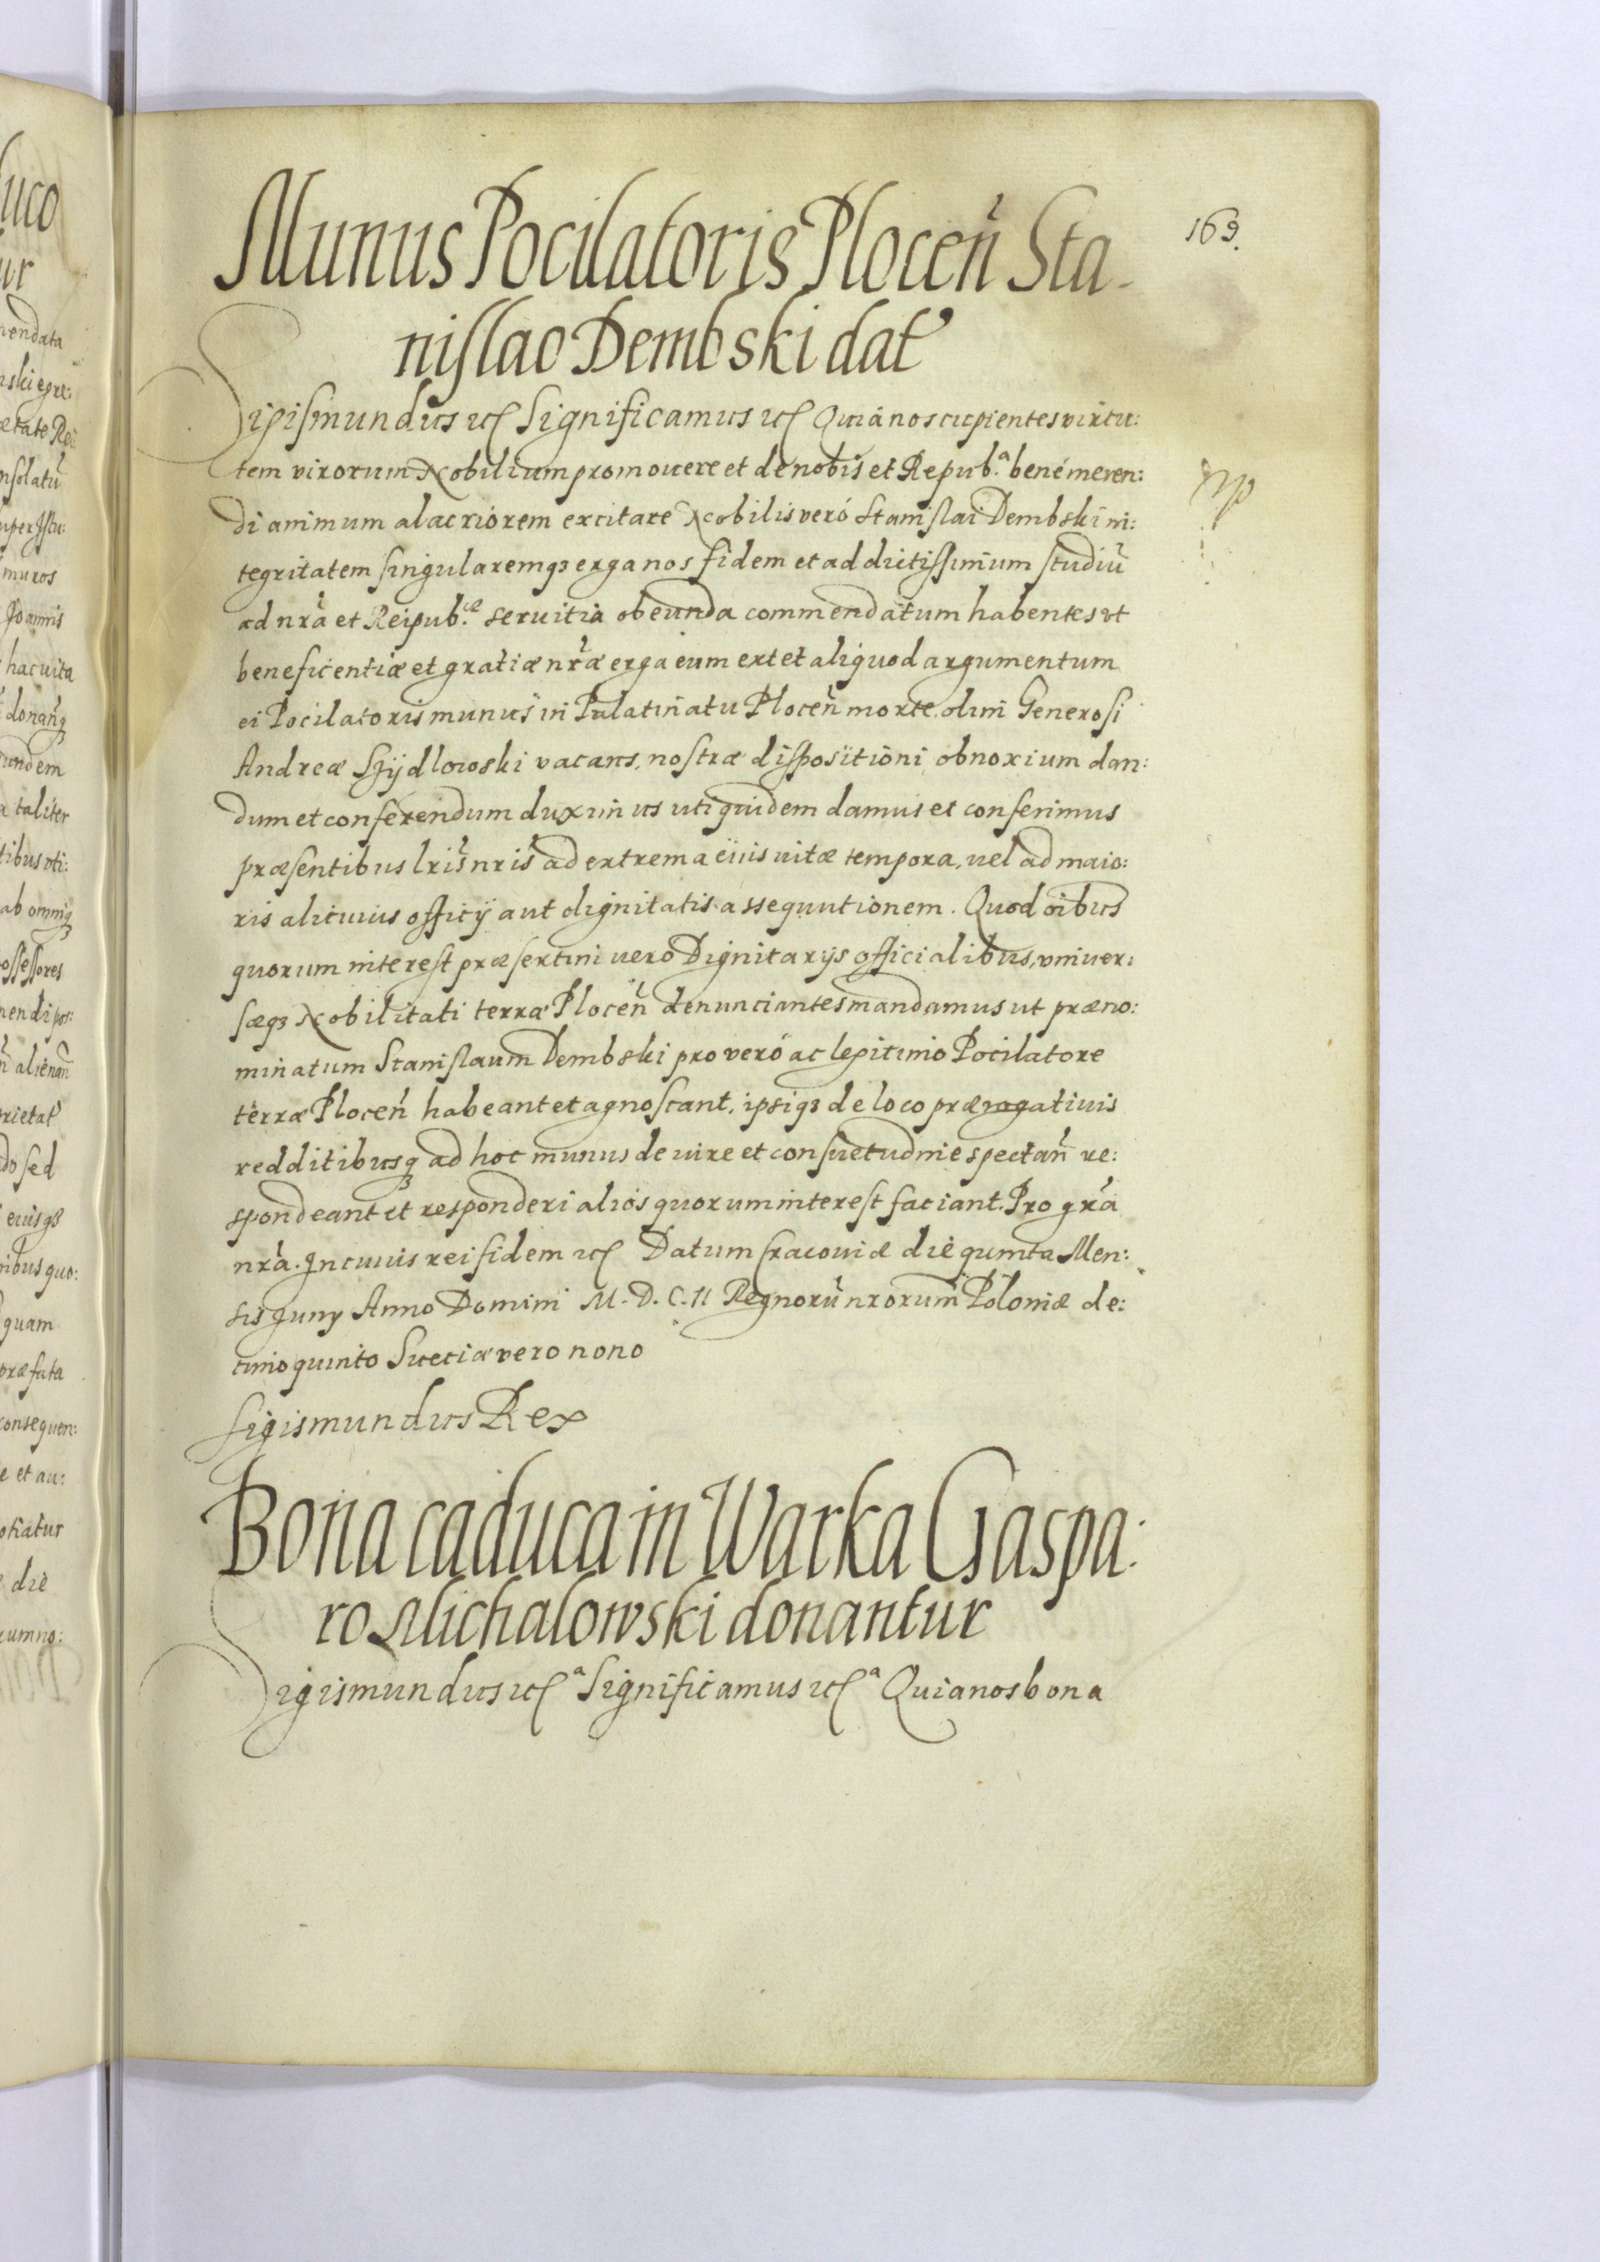 169.
Munus Pocilatoris Plocen̄ Sta-
nislao Dembski dat̄
Sigismundus etc Significamus etc Quia nos cupientes virtu:
tem virorum Nobilium promouere et de nobis et Repub.ᵃ bené meren:
di animum alacriorem excitare Nobilis veró Stanislai Dembski in:
tegritatem singularemqз erga nos fidem et addictissimum studiū
ad nrā et Reipub.ᶜᵃᵉ seruitia obeunda commendatum habentes vt
beneficentiæ et gratiæ nrǣ erga eum extet aliquod argumentum
ei Pocilatoris munus in Palatinatu Plocen̄ morte olim Generosi
Andreæ Szÿdlowski vacans, nostræ dispositioni obnoxium dan:
dum et conferendum duximus uti quidem damus et conferimus
præsentibus lris̄ nris̄ ad extrema eius uitæ tempora, uel ad maio:
ris alicuius officÿ aut dignitatis assequutionem. Quod oībus
quorum interest præsertim uero Dignitarÿs officialibus, vniuer:
sæqз Nobilitati terræ Plocen̄ denunciantes mandamus ut præno:
minatum Stanislaum Dembski pro veró ac legitimo Pocilatore
terræ Plocen̄ habeant et agnoscant, ipsiqз de loco prærogatiuis
redditibusqз ad hoc munus de iure et consuetudine spectan̄ re:
spondeant et responderi alios quorum interest faciant. Pro grā
nrā. In cuius rei fidem etc Datum Cracouiæ die quinta Men:
sis Juny Anno Domini M. D. C. II Regnorū nrorum Poloniæ de:
cimo quinto Sueciæ vero nono
Sigismundus Rex
Bona caduca in Warka Gaspa:
ro Michalowski donantur
Sigismundus etcᵃ Significamus etcᵃ Quia nos bona